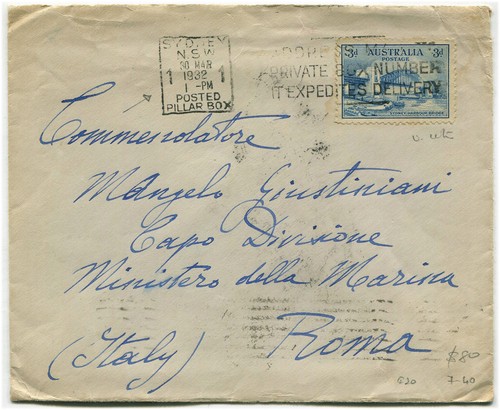 SYDNEY
N.S.W
30 MAR
1932
1 1
1 - PM
POSTED
PILLAR BOX
ADDRESS
PRIVATE BOX NUMBER
IT EXPEDITES DELIVERY
3d AUSTRALIA 3d
POSTAGE
SYDNEY HARBOUR BRIDGE
Commendatore
MAngelo Giustiniani
Capo Divisione
Ministero della Marina
(Italy) Roma
$80
7-40